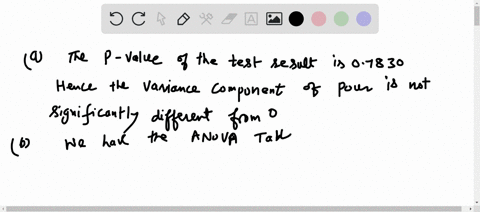 (a) The P-value of the test result is 0.7830
Hence the variance component of pour is not
significantly different from 0
(b) We have the ANOVA Tabl